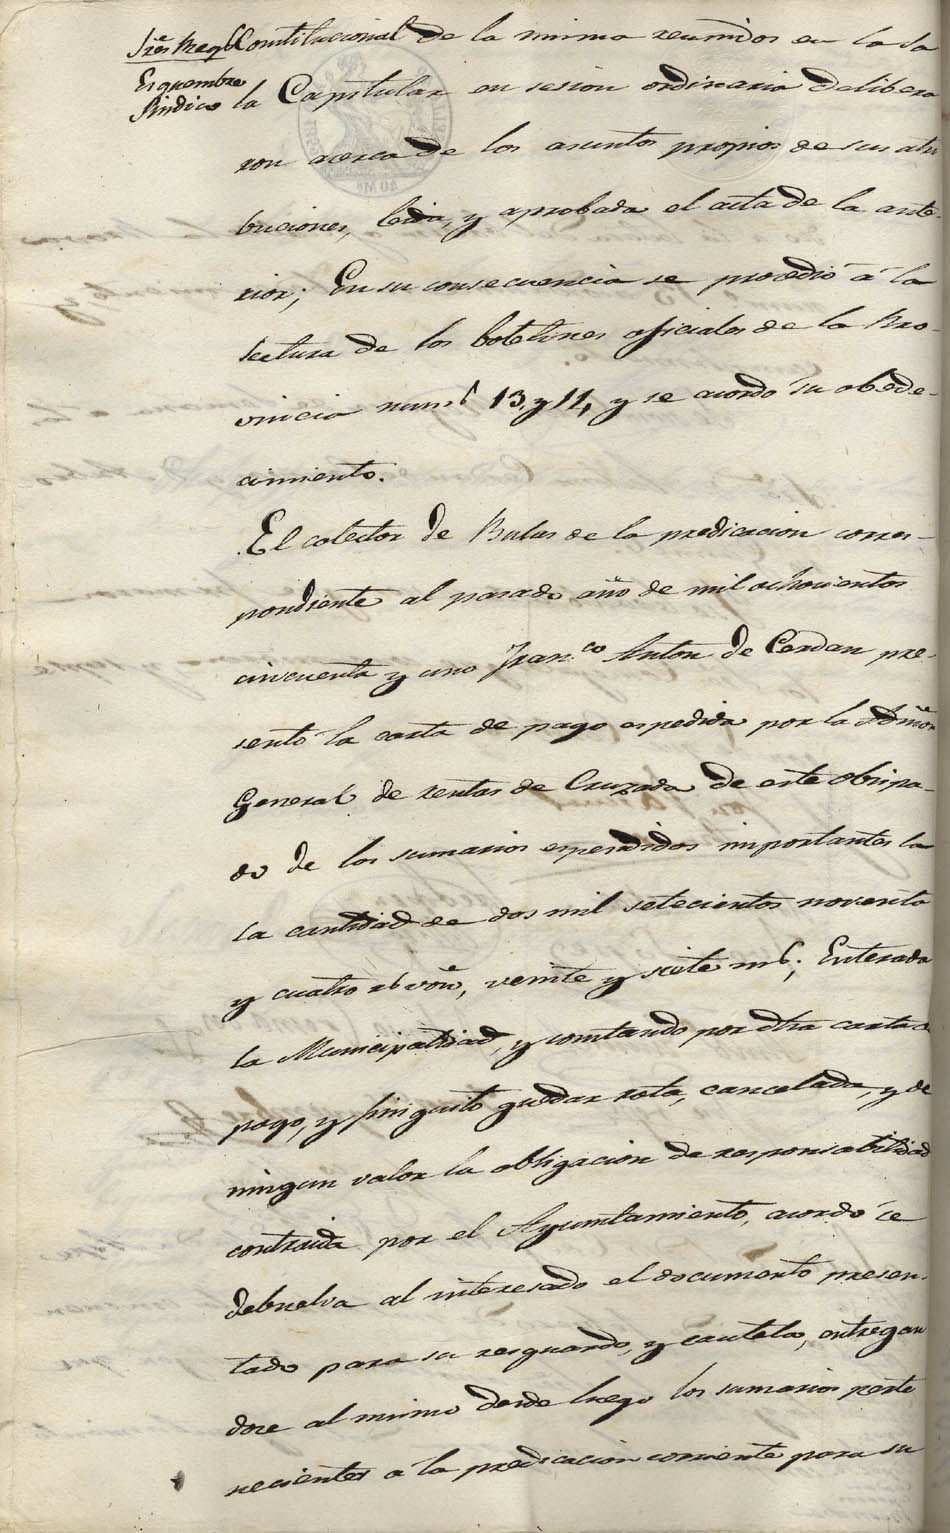 Sres Reqte
Esquembre
Sindico
Constitucional de la misma reunidos en la Sa
la Capitular en sesion ordinaria delibera
ron acerca de los asuntos propios de sus atri
buciones, leida, y aprobada el acta de la ante-
rior; En su consecuencia se procedió á la
lectura de los boletines oficiales de la Pro-
vincia nums 13, y 14, y se acordó su obede-
cimiento.
El colector de Bulas de la predicacion corres-
pondiente al pasado año de mil ochocientos
cincuenta y uno Franco Anton de Cerdan pre-
sentó la carta de pago espedida por la Admon
General de rentas de Cruzada de este Obispa-
do de los sumarios espendidos importantes la
la cantidad de dos mil setecientos noventa
y cuatro rs von, veinte y siete ms; Enterada
la Municipalidad, y constando por dha carta
pago, y finiquito quedar rota, cancelada, y de
ningun valor la obligacion de responsabilidad
contraida por el Ayuntamiento, acordó se
debuelva al interesado el documento presen-
tado para su resguardo, y cautela, entregan
dose al mismo desde luego los sumarios perte
necientes á la predicacion corriente para su